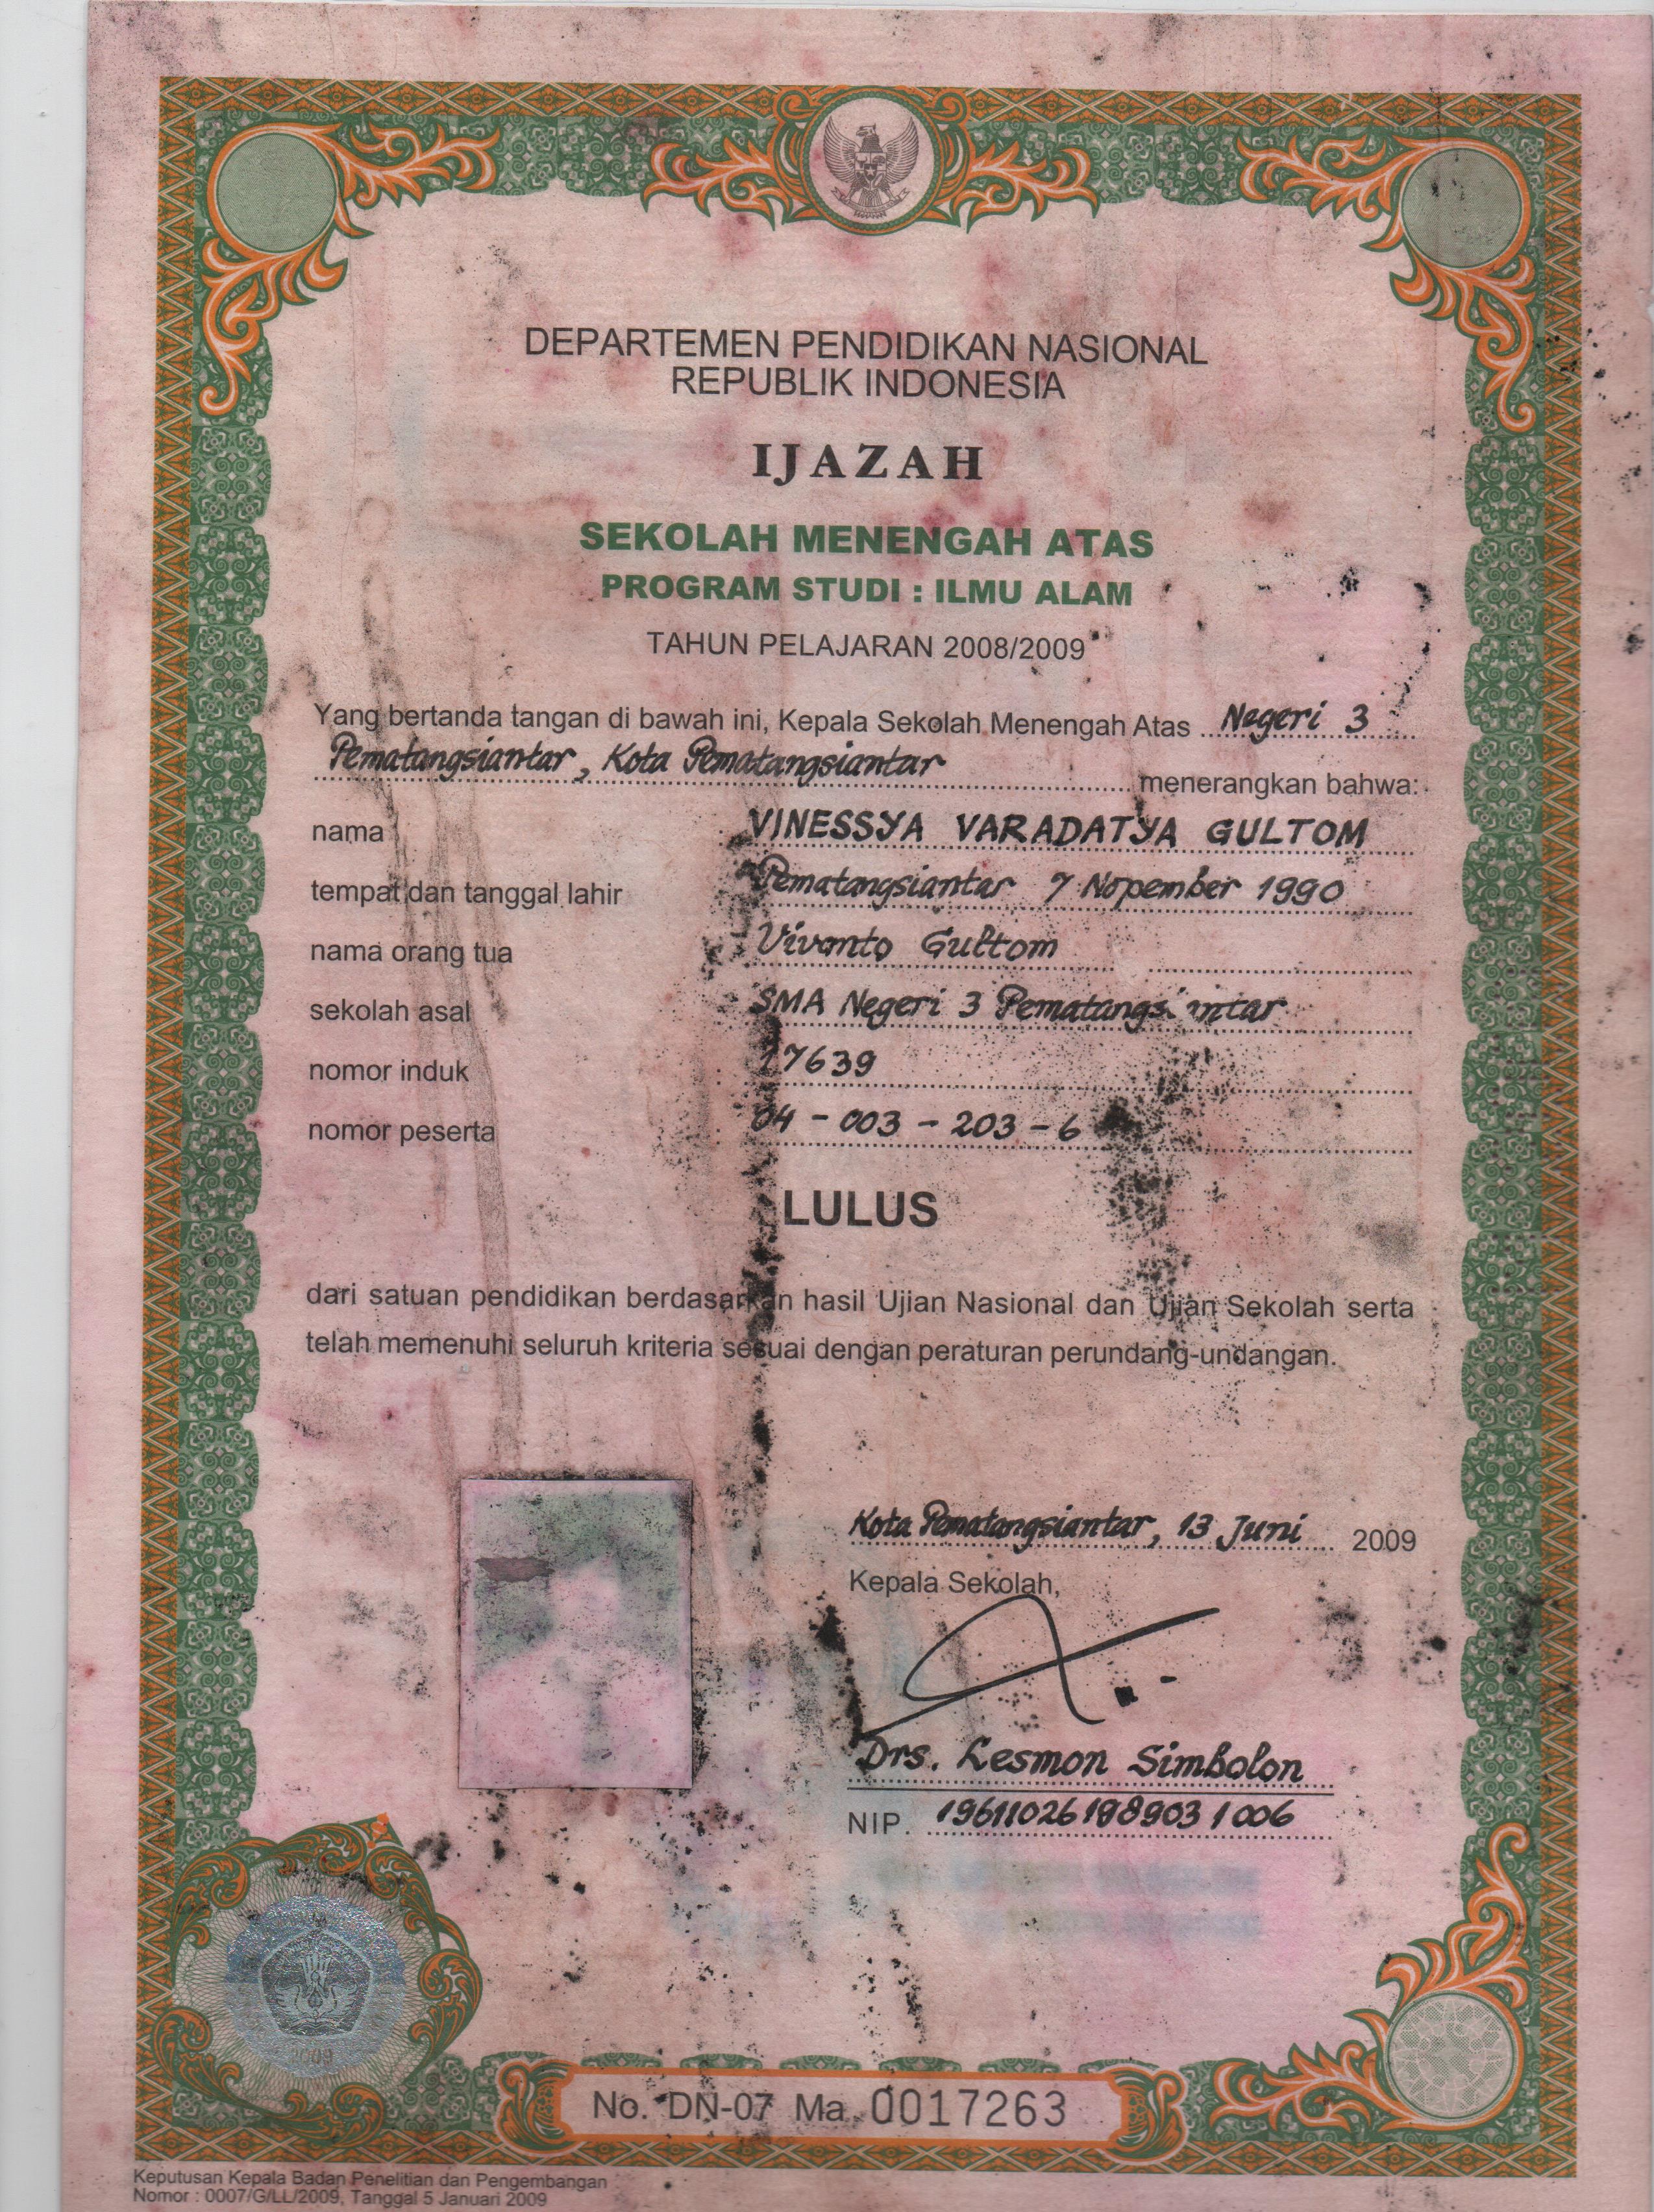 DEPARTEMEN PENDIDIKAN NASIONAL
REPUBLIK INDONESIA
IJAZAH
SEKOLAH MENENGAH ATAS
PROGRAM STUDI : ILMU ALAM
TAHUN PELAJARAN 2008/2009
Yang bertanda tangan di bawah ini, Kepala Sekolah Menengah Atas Negeri 3
Pematangsiantar, Kota Pematangsiantar menerangkan bahwa:
nama VINESSYA VARADATYA GULTOM
tempat dan tanggal lahir Pematangsiantar 7 Nopember 1990
nama orang tua Vivanto Gultom
sekolah asal SMA Negeri 3 Pematangsiantar
nomor induk 17639
nomor peserta 04 - 003 - 203 - 6
LULUS
dari satuan pendidikan berdasarkan hasil Ujian Nasional dan Ujian Sekolah serta
telah memenuhi seluruh kriteria sesuai dengan peraturan perundang-undangan.
Kota Pematangsiantar, 13 Juni 2009
Kepala Sekolah,
Drs. Lesmon Simbolon
NIP. 19611026 198903 1 006
2009
No. DN-07 Ma 0017263
Keputusan Kepala Badan Penelitian dan Pengembangan
Nomor : 0007/G/LL/2009, Tanggal 5 Januari 2009